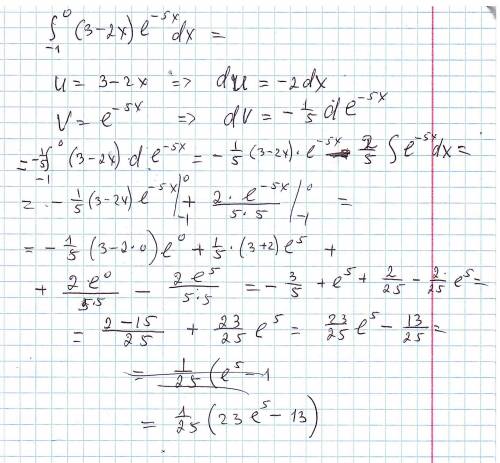 ∫₋₁⁰ (3-2x) e^{-5x} dx =
u = 3-2x => du = -2dx
v = e^{-5x} => dv = -1/5 d e^{-5x}
= -1/5 ∫₋₁⁰ (3-2x)·d e^{-5x} = -1/5 (3-2x)·e^{-5x} - 2/5 ∫ e^{-5x} dx =
= -1/5 (3-2x) e^{-5x} |₋₁⁰ + 2·e^{-5x}/5·5 |₋₁⁰ =
= -1/5 (3-2·0) e⁰ + 1/5·(3+2) e⁵ +
+ 2·e⁰/5·5 - 2e⁵/5·5 = -3/5 + e⁵ + 2/25 - 2/25 e⁵ =
= 2-15/25 + 23/25 e⁵ = 23/25 e⁵ - 13/25 =
= 1/25 (e⁵ - 1
= 1/25 (23e⁵ - 13)